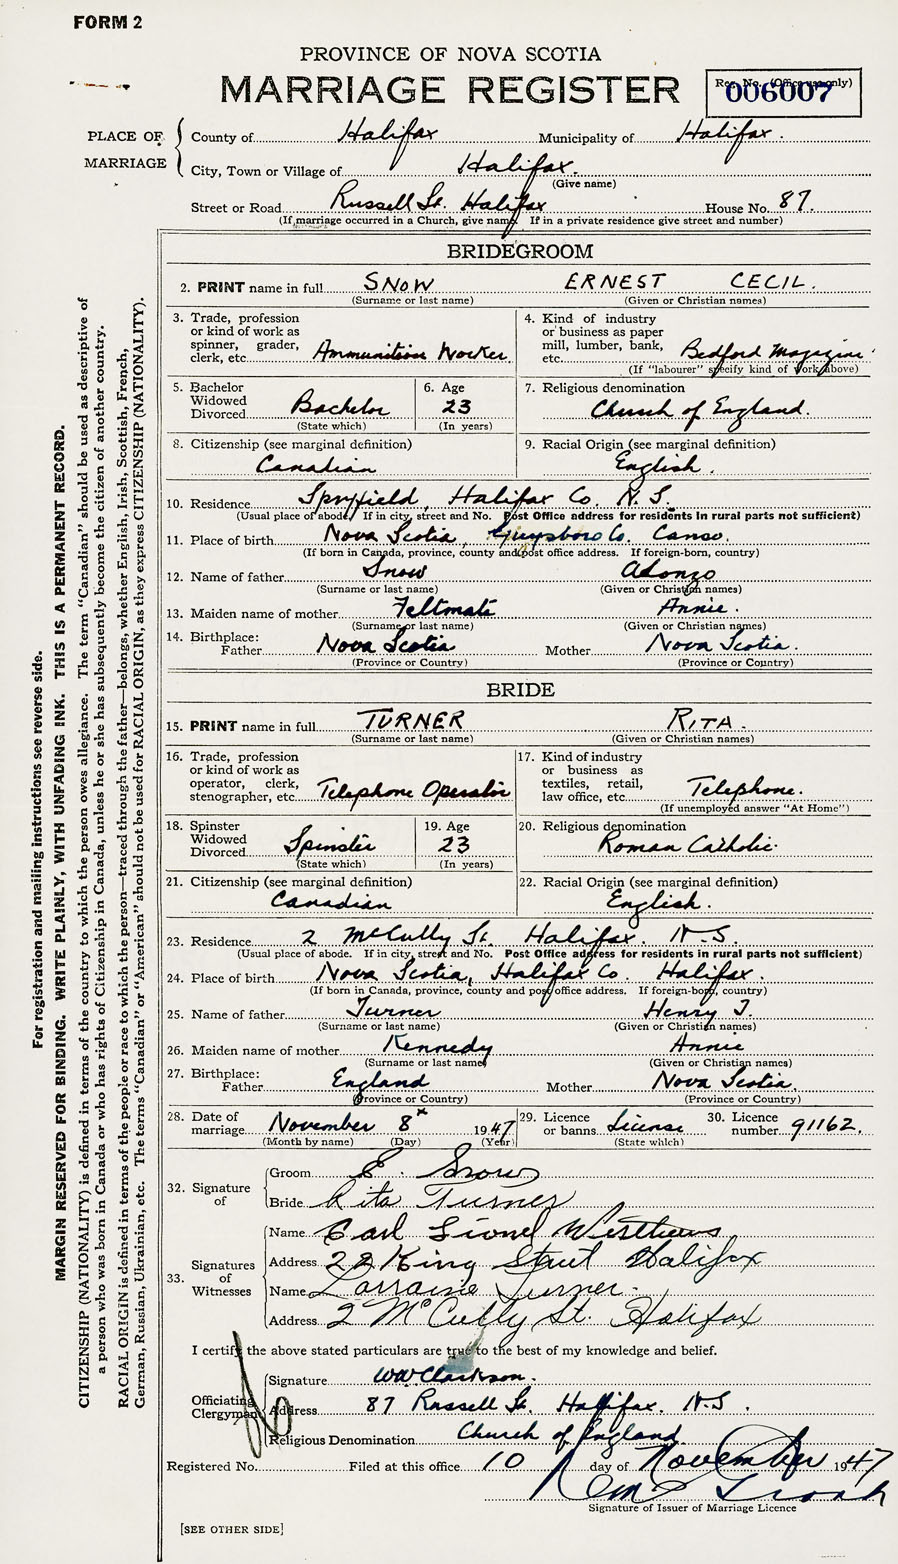 FORM 2
PROVINCE OF NOVA SCOTIA
MARRIAGE REGISTER
Reg. No. (Office use only)
006007
PLACE OF MARRIAGE
County of Halifax Municipality of Halifax.
City, Town or Village of Halifax.
(Give name)
Street or Road Russell St. Halifax House No. 87.
(If marriage occurred in a Church, give name. If in a private residence give street and number)
BRIDEGROOM
2. PRINT name in full SNOW ERNEST CECIL.
(Surname or last name) (Given or Christian names)
3. Trade, profession or kind of work as spinner, grader, clerk, etc. Ammunition Worker.
4. Kind of industry or business as paper mill, lumber, bank, etc. Bedford Magazine
(If "labourer" specify kind of work above)
5. Bachelor Widowed Divorced Bachelor
(State which)
6. Age 23
(In years)
7. Religious denomination
Church of England.
8. Citizenship (see marginal definition)
Canadian
9. Racial Origin (see marginal definition)
English.
10. Residence Spryfield, Halifax Co. N.S.
(Usual place of abode. If in city, street and No. Post Office address for residents in rural parts not sufficient)
11. Place of birth Nova Scotia, Guysboro Co. Canso.
(If born in Canada, province, county and post office address. If foreign-born, country)
12. Name of father Snow Alonzo
(Surname or last name) (Given or Christian names)
13. Maiden name of mother Feltmate Annie.
(Surname or last name) (Given or Christian names)
14. Birthplace:
Father Nova Scotia Mother Nova Scotia.
(Province or Country) (Province or Country)
BRIDE
15. PRINT name in full TURNER RITA.
(Surname or last name) (Given or Christian names)
16. Trade, profession or kind of work as operator, clerk, stenographer, etc. Telephone Operator
17. Kind of industry or business as textiles, retail, law office, etc. Telephone.
(If unemployed answer "At Home")
18. Spinster Widowed Divorced Spinster
(State which)
19. Age 23
(In years)
20. Religious denomination
Roman Catholic.
21. Citizenship (see marginal definition)
Canadian
22. Racial Origin (see marginal definition)
English.
23. Residence 2 McCully St. Halifax. N.S.
(Usual place of abode. If in city, street and No. Post Office address for residents in rural parts not sufficient)
24. Place of birth Nova Scotia, Halifax Co. Halifax.
(If born in Canada, province, county and post office address. If foreign-born, country)
25. Name of father Turner Henry J.
(Surname or last name) (Given or Christian names)
26. Maiden name of mother Kennedy Annie
(Surname or last name) (Given or Christian names)
27. Birthplace:
Father England Mother Nova Scotia.
(Province or Country) (Province or Country)
28. Date of marriage November 8th 1947
(Month by name) (Day) (Year)
29. Licence or banns License
(State which)
30. Licence number 91162.
32. Signature of
Groom E. Snow
Bride Rita Turner
33. Signatures of Witnesses
Name Carl Lionel
Address 22 King Street Halifax
Name Lorraine Turner.
Address 2 McCully St. Halifax
I certify the above stated particulars are true to the best of my knowledge and belief.
Officiating Clergyman
Signature WW Clarkson.
Address 87 Russell St. Halifax. N.S.
Religious Denomination Church of England
Registered No. Filed at this office 10 day of November 1947
Signature of Issuer of Marriage Licence
[SEE OTHER SIDE]
For registration and mailing instructions see reverse side.
MARGIN RESERVED FOR BINDING. WRITE PLAINLY, WITH UNFADING INK. THIS IS A PERMANENT RECORD.
CITIZENSHIP (NATIONALITY) is defined in terms of the country to which the person owes allegiance. The term "Canadian" should be used as descriptive of
a person who was born in Canada or who has rights of Citizenship in Canada, unless he or she has subsequently become the citizen of another country.
RACIAL ORIGIN is defined in terms of the people or race to which the person—traced through the father—belongs, whether English, Irish, Scottish, French,
German, Russian, Ukrainian, etc. The terms "Canadian" or "American" should not be used for RACIAL ORIGIN, as they express CITIZENSHIP (NATIONALITY).